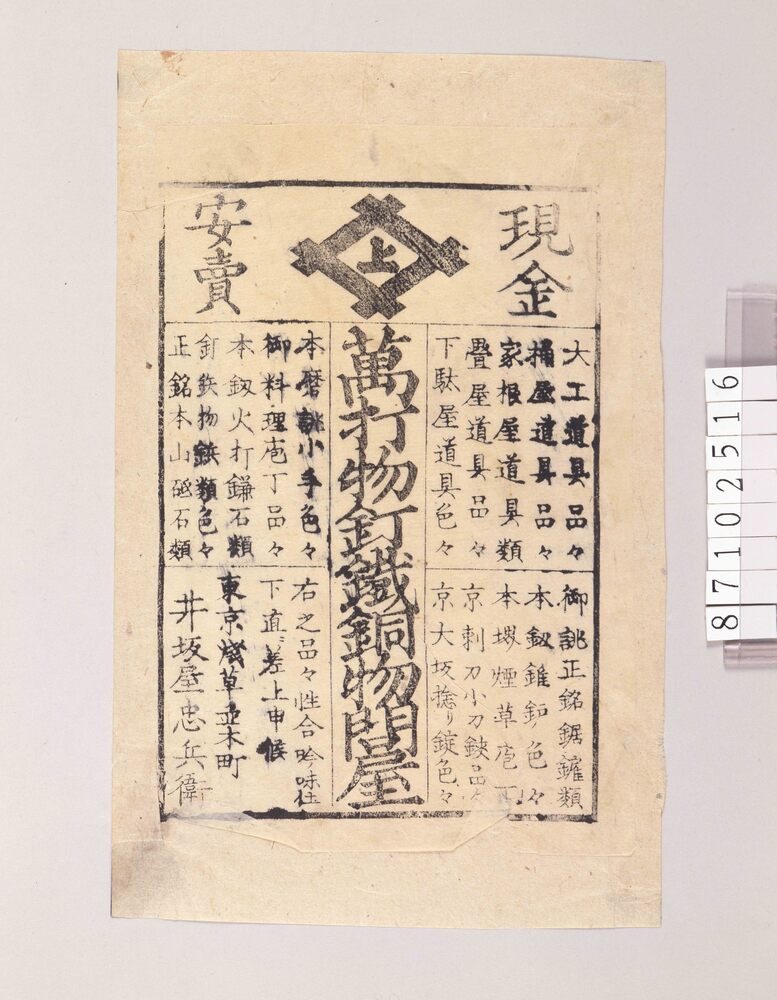 現金
上
安賣
大工道具品々
桶屋道具品々
家根屋道具類
疊屋道具品々
下駄屋道具色々
御誂正銘鋸鑢類
本釼錐鉋色々
本堺煙草庖丁
京剃刀小刀鋏品々
京大坂捻り錠色々
萬打物釘鐵銅物問屋
本磨誂小手色々
御料理庖丁品々
本釼火打鎌石類
釘鉄物鋏類色々
正銘本山砥石類
右之品々性合吟味仕
下直ニ差上申候
東京淺草並木町
井坂屋忠兵衛
87102516